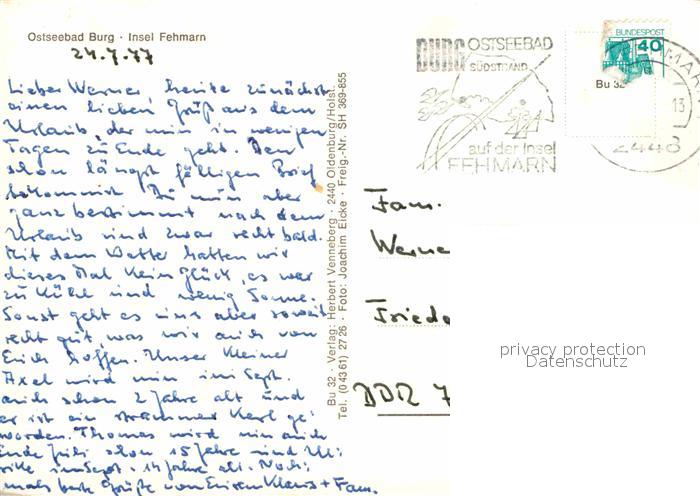 Ostseebad Burg · Insel Fehmarn
24.7.77
Lieber Werner heute zunächst
einen lieben Gruß aus dem
Urlaub, der nun in wenigen
Tagen zu Ende geht. Den
schon längst fälligen Brief
bekommst Du nun aber
ganz bestimmt nach dem
Urlaub und zwar recht bald.
Mit dem Wetter hatten wir
dieses Mal kein Glück, es war
zu kühl und wenig Sonne.
Sonst geht es uns aber soweit
recht gut, was wir auch von
Euch hoffen. Unser kleiner
Axel wird nun im Sept.
auch schon 2 Jahre alt und
er ist ein strammer Kerl ge-
worden. Thomas wird nun auch
Ende Juli schon 15 Jahre und Ul-
rike im Sept. 14 Jahre alt. Noch-
mals beste Grüße von Eurem Klaus + Fam.
Bu 32 · Verlag: Herbert Venneberg · 2440 Oldenburg/Holst.
Tel. (0 43 61) 27 26 · Foto: Joachim Eicke · Freig.-Nr. SH 369-855
BURG OSTSEEBAD
SÜDSTRAND
auf der Insel
FEHMARN
BUNDESPOST
40
Bu 32
13
2448
Fam.
Werne
Friede
DDR 7
privacy protection
Datenschutz